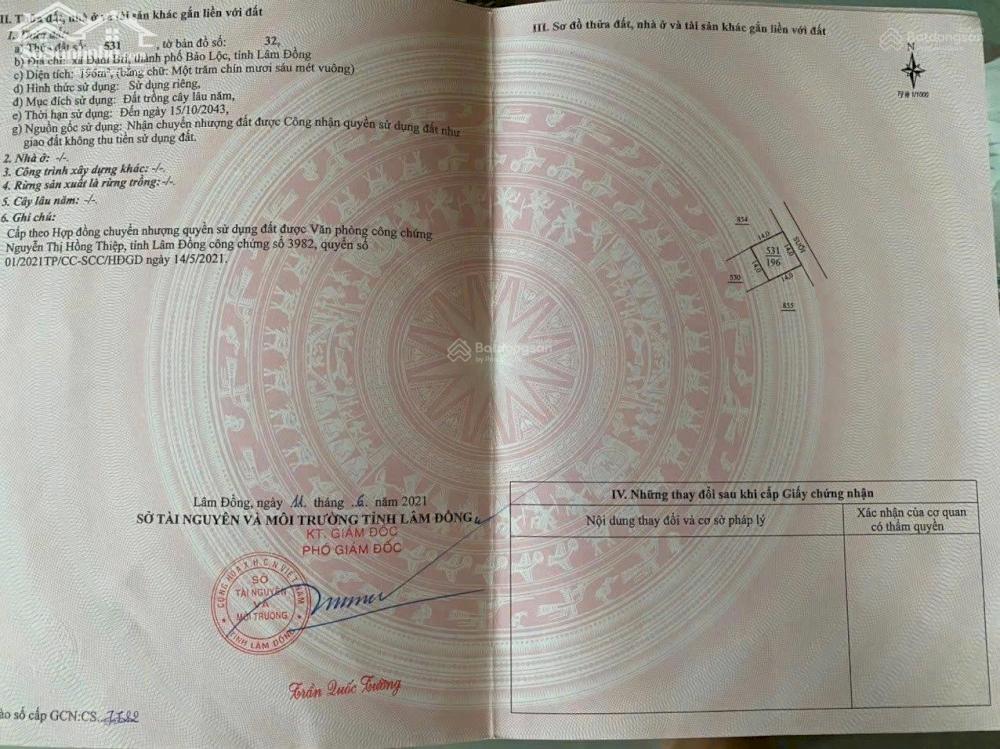 II. Thửa đất, nhà ở và tài sản khác gắn liền với đất
1. Thửa đất:
a) Thửa đất số: 531 , tờ bản đồ số: 32,
b) Địa chỉ: xã Đam Bri, thành phố Bảo Lộc, tỉnh Lâm Đồng
c) Diện tích: 196m², (bằng chữ: Một trăm chín mươi sáu mét vuông)
d) Hình thức sử dụng: Sử dụng riêng,
đ) Mục đích sử dụng: Đất trồng cây lâu năm,
e) Thời hạn sử dụng: Đến ngày 15/10/2043,
g) Nguồn gốc sử dụng: Nhận chuyển nhượng đất được Công nhận quyền sử dụng đất như
giao đất không thu tiền sử dụng đất.
2. Nhà ở: -/-.
3. Công trình xây dựng khác: -/-.
4. Rừng sản xuất là rừng trồng: -/-.
5. Cây lâu năm: -/-.
6. Ghi chú:
Cấp theo Hợp đồng chuyển nhượng quyền sử dụng đất được Văn phòng công chứng
Nguyễn Thị Hồng Thiệp, tỉnh Lâm Đồng công chứng số 3982, quyển số
01/2021TP/CC-SCC/HĐGD ngày 14/5/2021.
Lâm Đồng, ngày 11 tháng 6 năm 2021
SỞ TÀI NGUYÊN VÀ MÔI TRƯỜNG TỈNH LÂM ĐỒNG
KT. GIÁM ĐỐC
PHÓ GIÁM ĐỐC
CỘNG HÒA X.H.C.N VIỆT NAM
SỞ
TÀI NGUYÊN
VÀ
MÔI TRƯỜNG
TỈNH LÂM ĐỒNG
Trần Quốc Tường
ào số cấp GCN:CS.
III. Sơ đồ thửa đất, nhà ở và tài sản khác gắn liền với đất
Batdongsan
N
Tỷ lệ 1/1000
854
SUỐI
14,0
14,0
531
196
14,0
14,0
530
855
Batdongsan
IV. Những thay đổi sau khi cấp Giấy chứng nhận
Nội dung thay đổi và cơ sở pháp lý
Xác nhận của cơ quan
có thẩm quyền